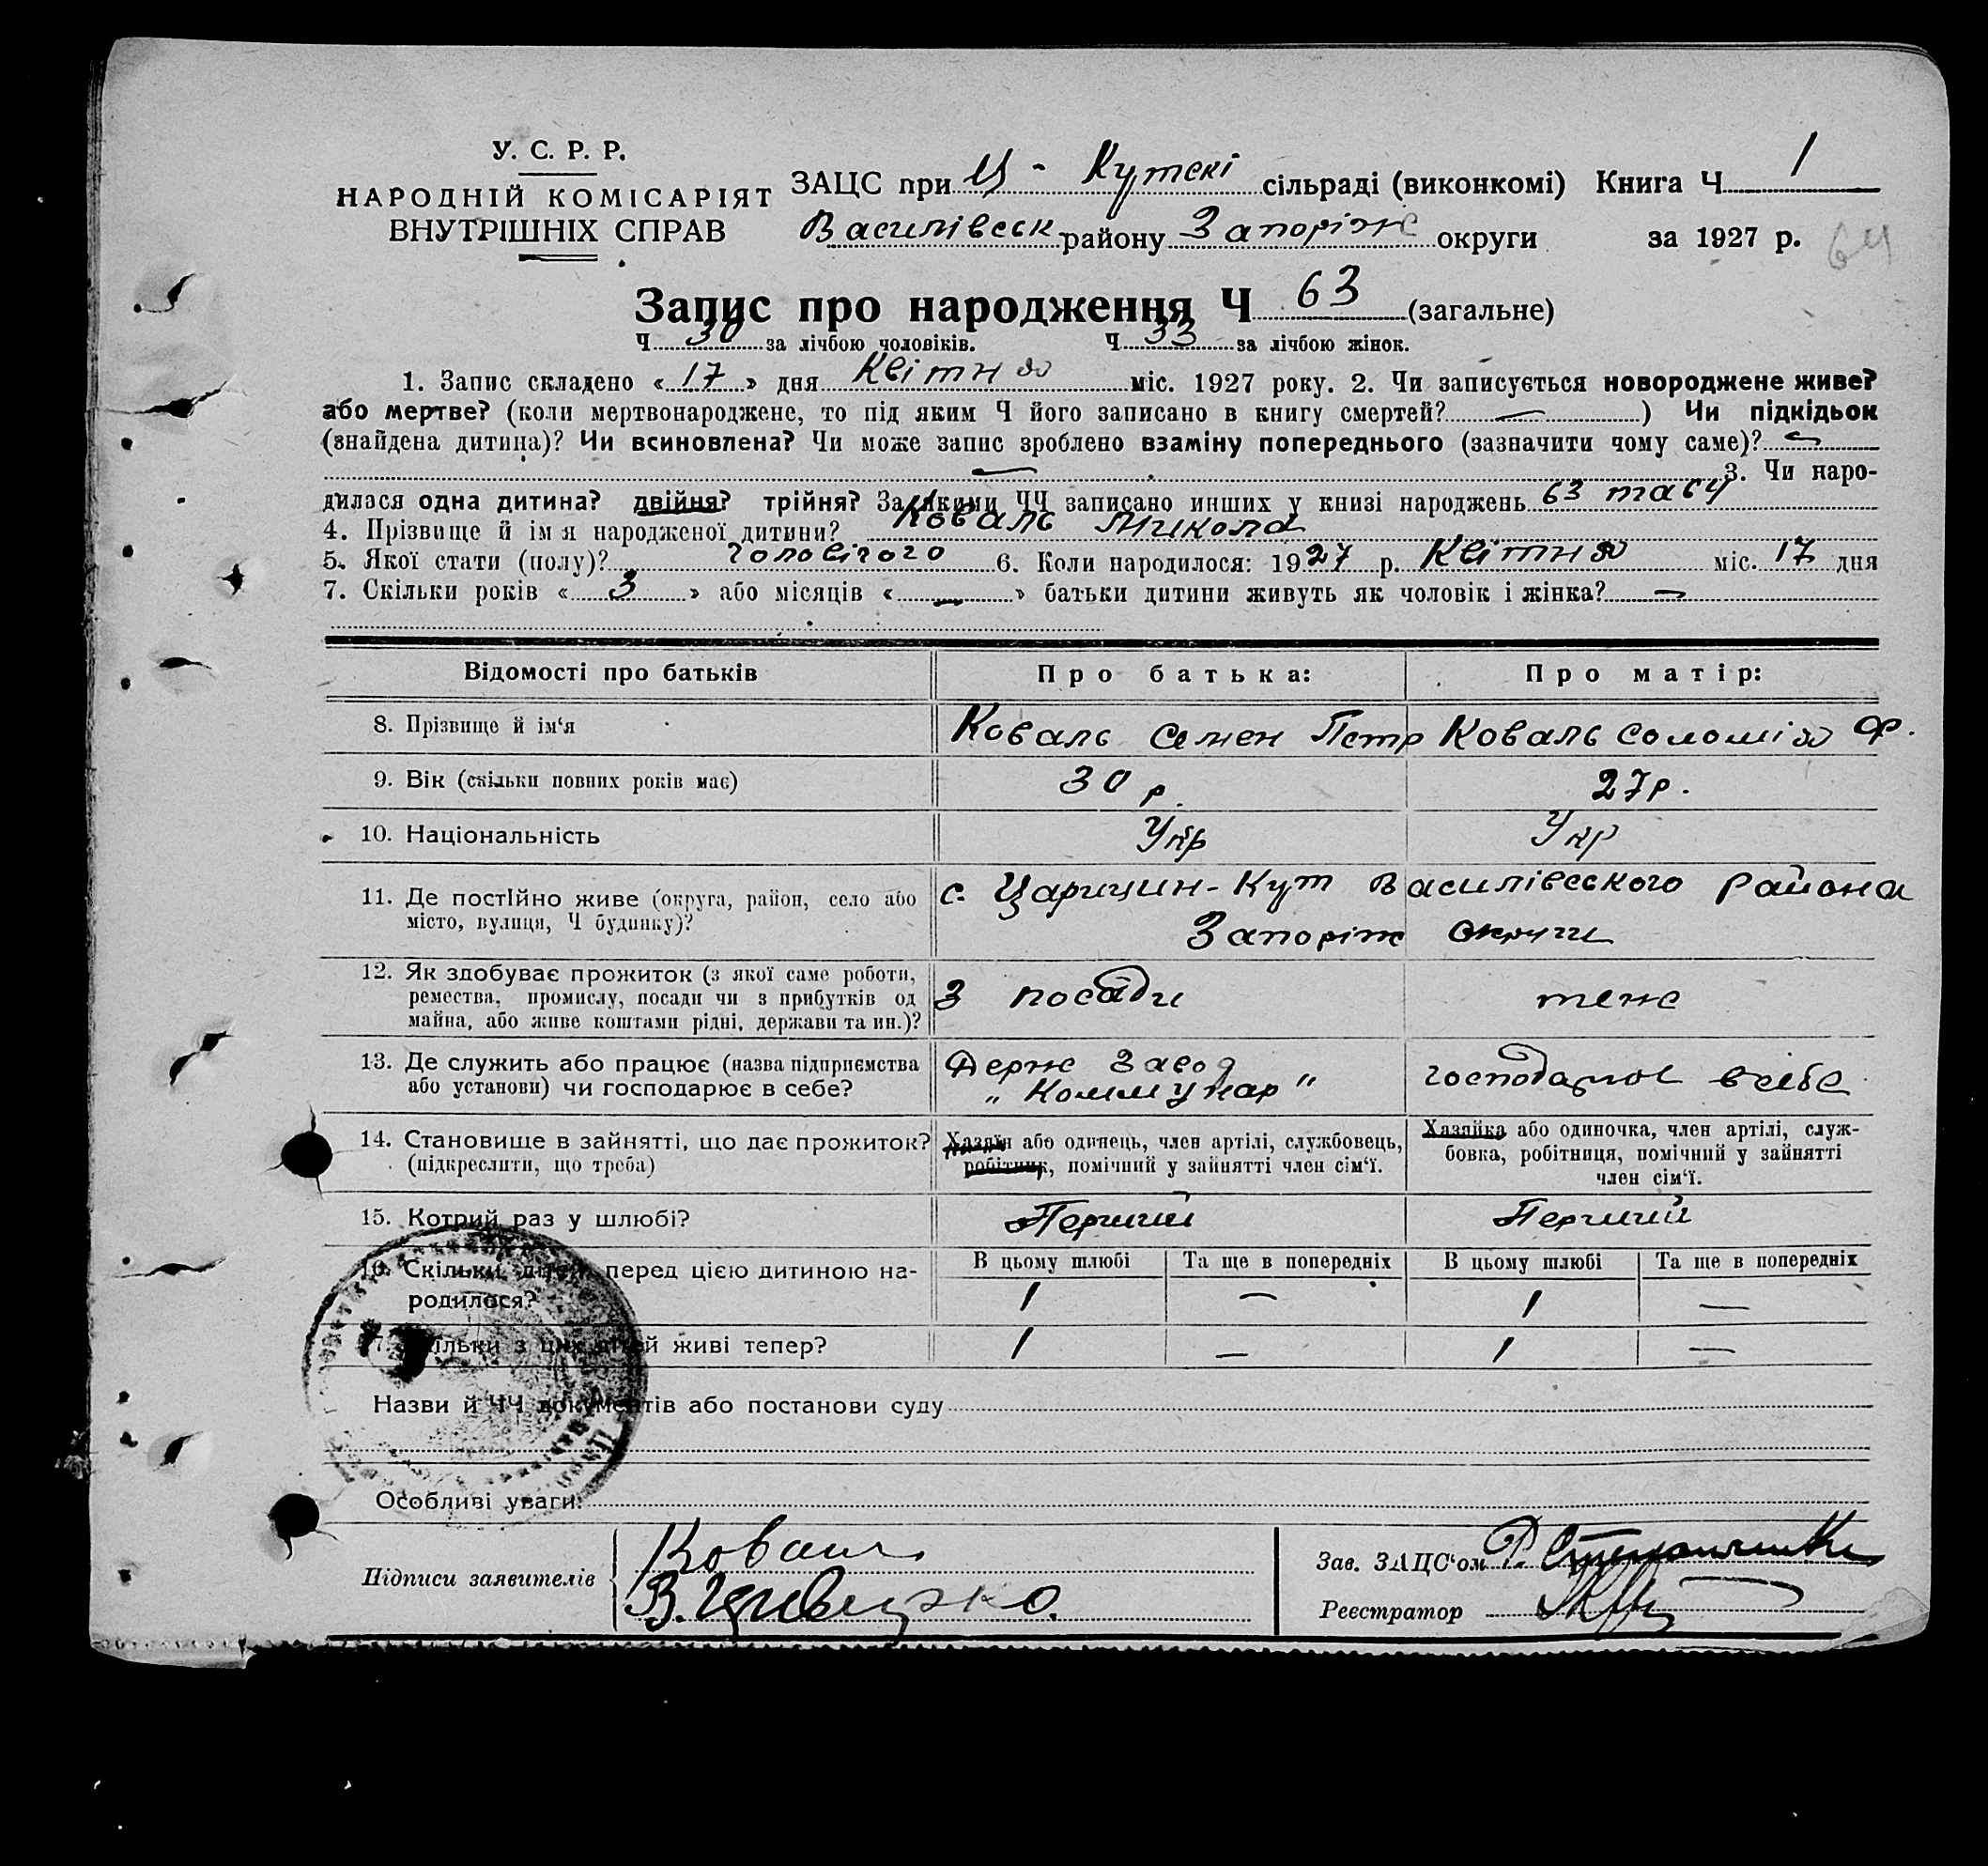 У. С. Р. Р.
НАРОДНІЙ КОМІСАРІЯТ
ВНУТРІШНІХ СПРАВ
ЗАЦС при Ц - Кутскі сільраді (виконкомі) Книга Ч 1
Василівськ району Запоріж округи за 1927 р. 64
Запис про народження Ч 63 (загальне)
Ч 30 за лічбою чоловіків. Ч 33 за лічбою жінок.
1. Запис складено «17» дня Квітня міс. 1927 року. 2. Чи записується новороджене живе?
або мертве? (коли мертвонароджене, то під яким Ч його записано в книгу смертей? —) Чи підкідьок
(знайдена дитина)? Чи всиновлена? Чи може запис зроблено взаміну попереднього (зазначити чому саме)? —
— 3. Чи наро-
дилася одна дитина? двійня? трійня? За якими ЧЧ записано инших у книзі народжень 63 та 64
4. Прізвище й ім'я народженої дитини? Коваль Микола
5. Якої стати (полу)? чоловічого 6. Коли народилося: 1927 р. Квітня міс. 17 дня
7. Скільки років «3» або місяців «—» батьки дитини живуть як чоловік і жінка? —
Відомості про батьків Про батька: Про матір:
8. Прізвище й ім'я Коваль Семен Петр Коваль Соломія Ф.
9. Вік (скільки повних років має) 30 р. 27 р.
10. Національність Укр Укр
11. Де постійно живе (округа, район, село або
місто, вулиця, Ч будинку)?
с. Царицин-Кут Василівського Района
Запоріж округи
12. Як здобуває прожиток (з якої саме роботи,
ремества, промислу, посади чи з прибутків од
майна, або живе коштами рідні, держави та ин.)?
З посади теж
13. Де служить або працює (назва підприємства
або установи) чи господарює в себе?
Держ Завод
„Коммунар"
господарює в себе
14. Становище в зайнятті, що дає прожиток?
(підкреслити, що треба)
Хазяїн або одинець, член артілі, службовець,
робітник, помічний у зайнятті член сім'ї.
Хазяйка або одиночка, член артілі, служ-
бовка, робітниця, помічний у зайнятті
член сім'ї.
15. Котрий раз у шлюбі? Перший Перший
16. Скільки дітей перед цією дитиною на-
родилося?
В цьому шлюбі Та ще в попередніх В цьому шлюбі Та ще в попередніх
1 — 1 —
17. Скільки з цих дітей живі тепер? 1 — 1 —
Назви й ЧЧ документів або постанови суду
Особливі уваги:
Підписи заявителів
Коваль
В.
Зав. ЗАЦС'ом
Реєстратор